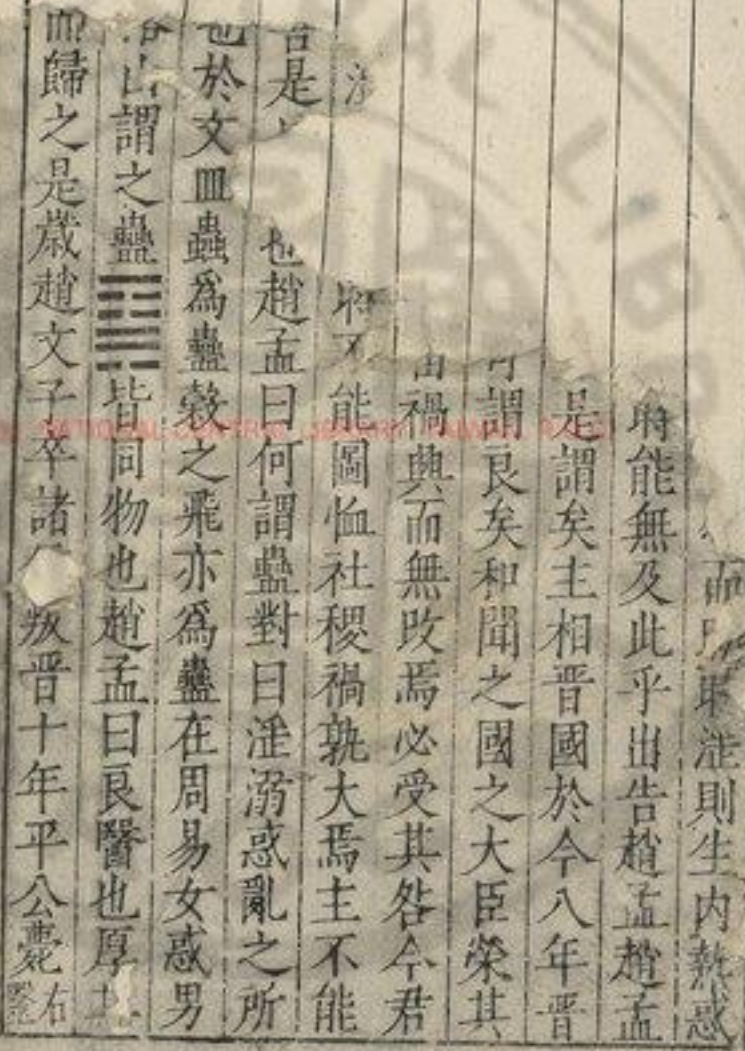 而時淫則生内熱惑
時能無及此乎出告趙孟趙孟
是謂矣主相晉國於今八年晉
可謂良矣和聞之國之大臣榮其
禍興而無改焉必受其咎今君
將不能圖恤社稷禍孰大焉主不能
吾是也趙孟曰何謂蠱對曰淫溺惑亂之所
也於文皿蟲為蠱穀之飛亦為蠱在周易女惑男
山謂之蠱䷑皆同物也趙孟曰良醫也厚其
而歸之是歲趙文子卒諸叛晉十年平公薨右